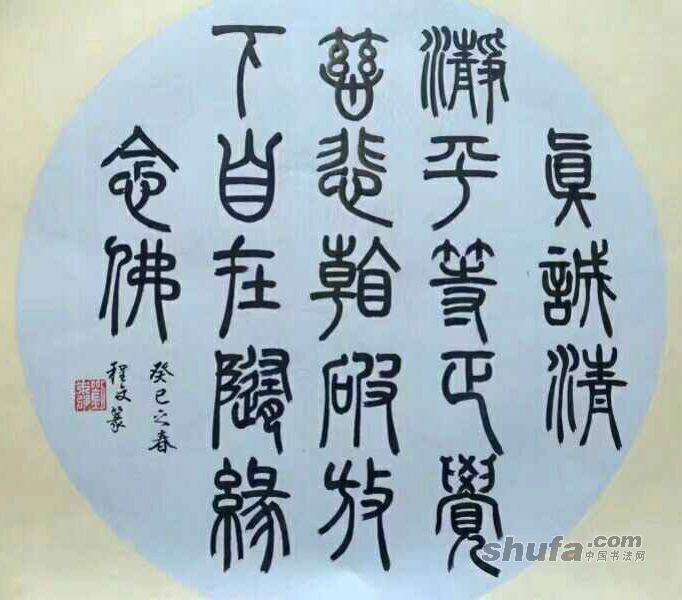 眞誠清
瀞平等正覺
慈悲看破放
下自在隨緣
念佛
癸巳之春
程文篆
shufa.com
中国书法网